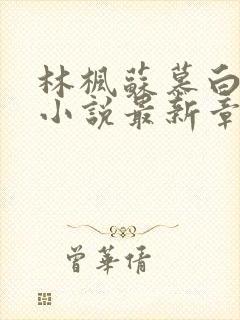 林楓蘇慕白
小說最新章
曾華倩